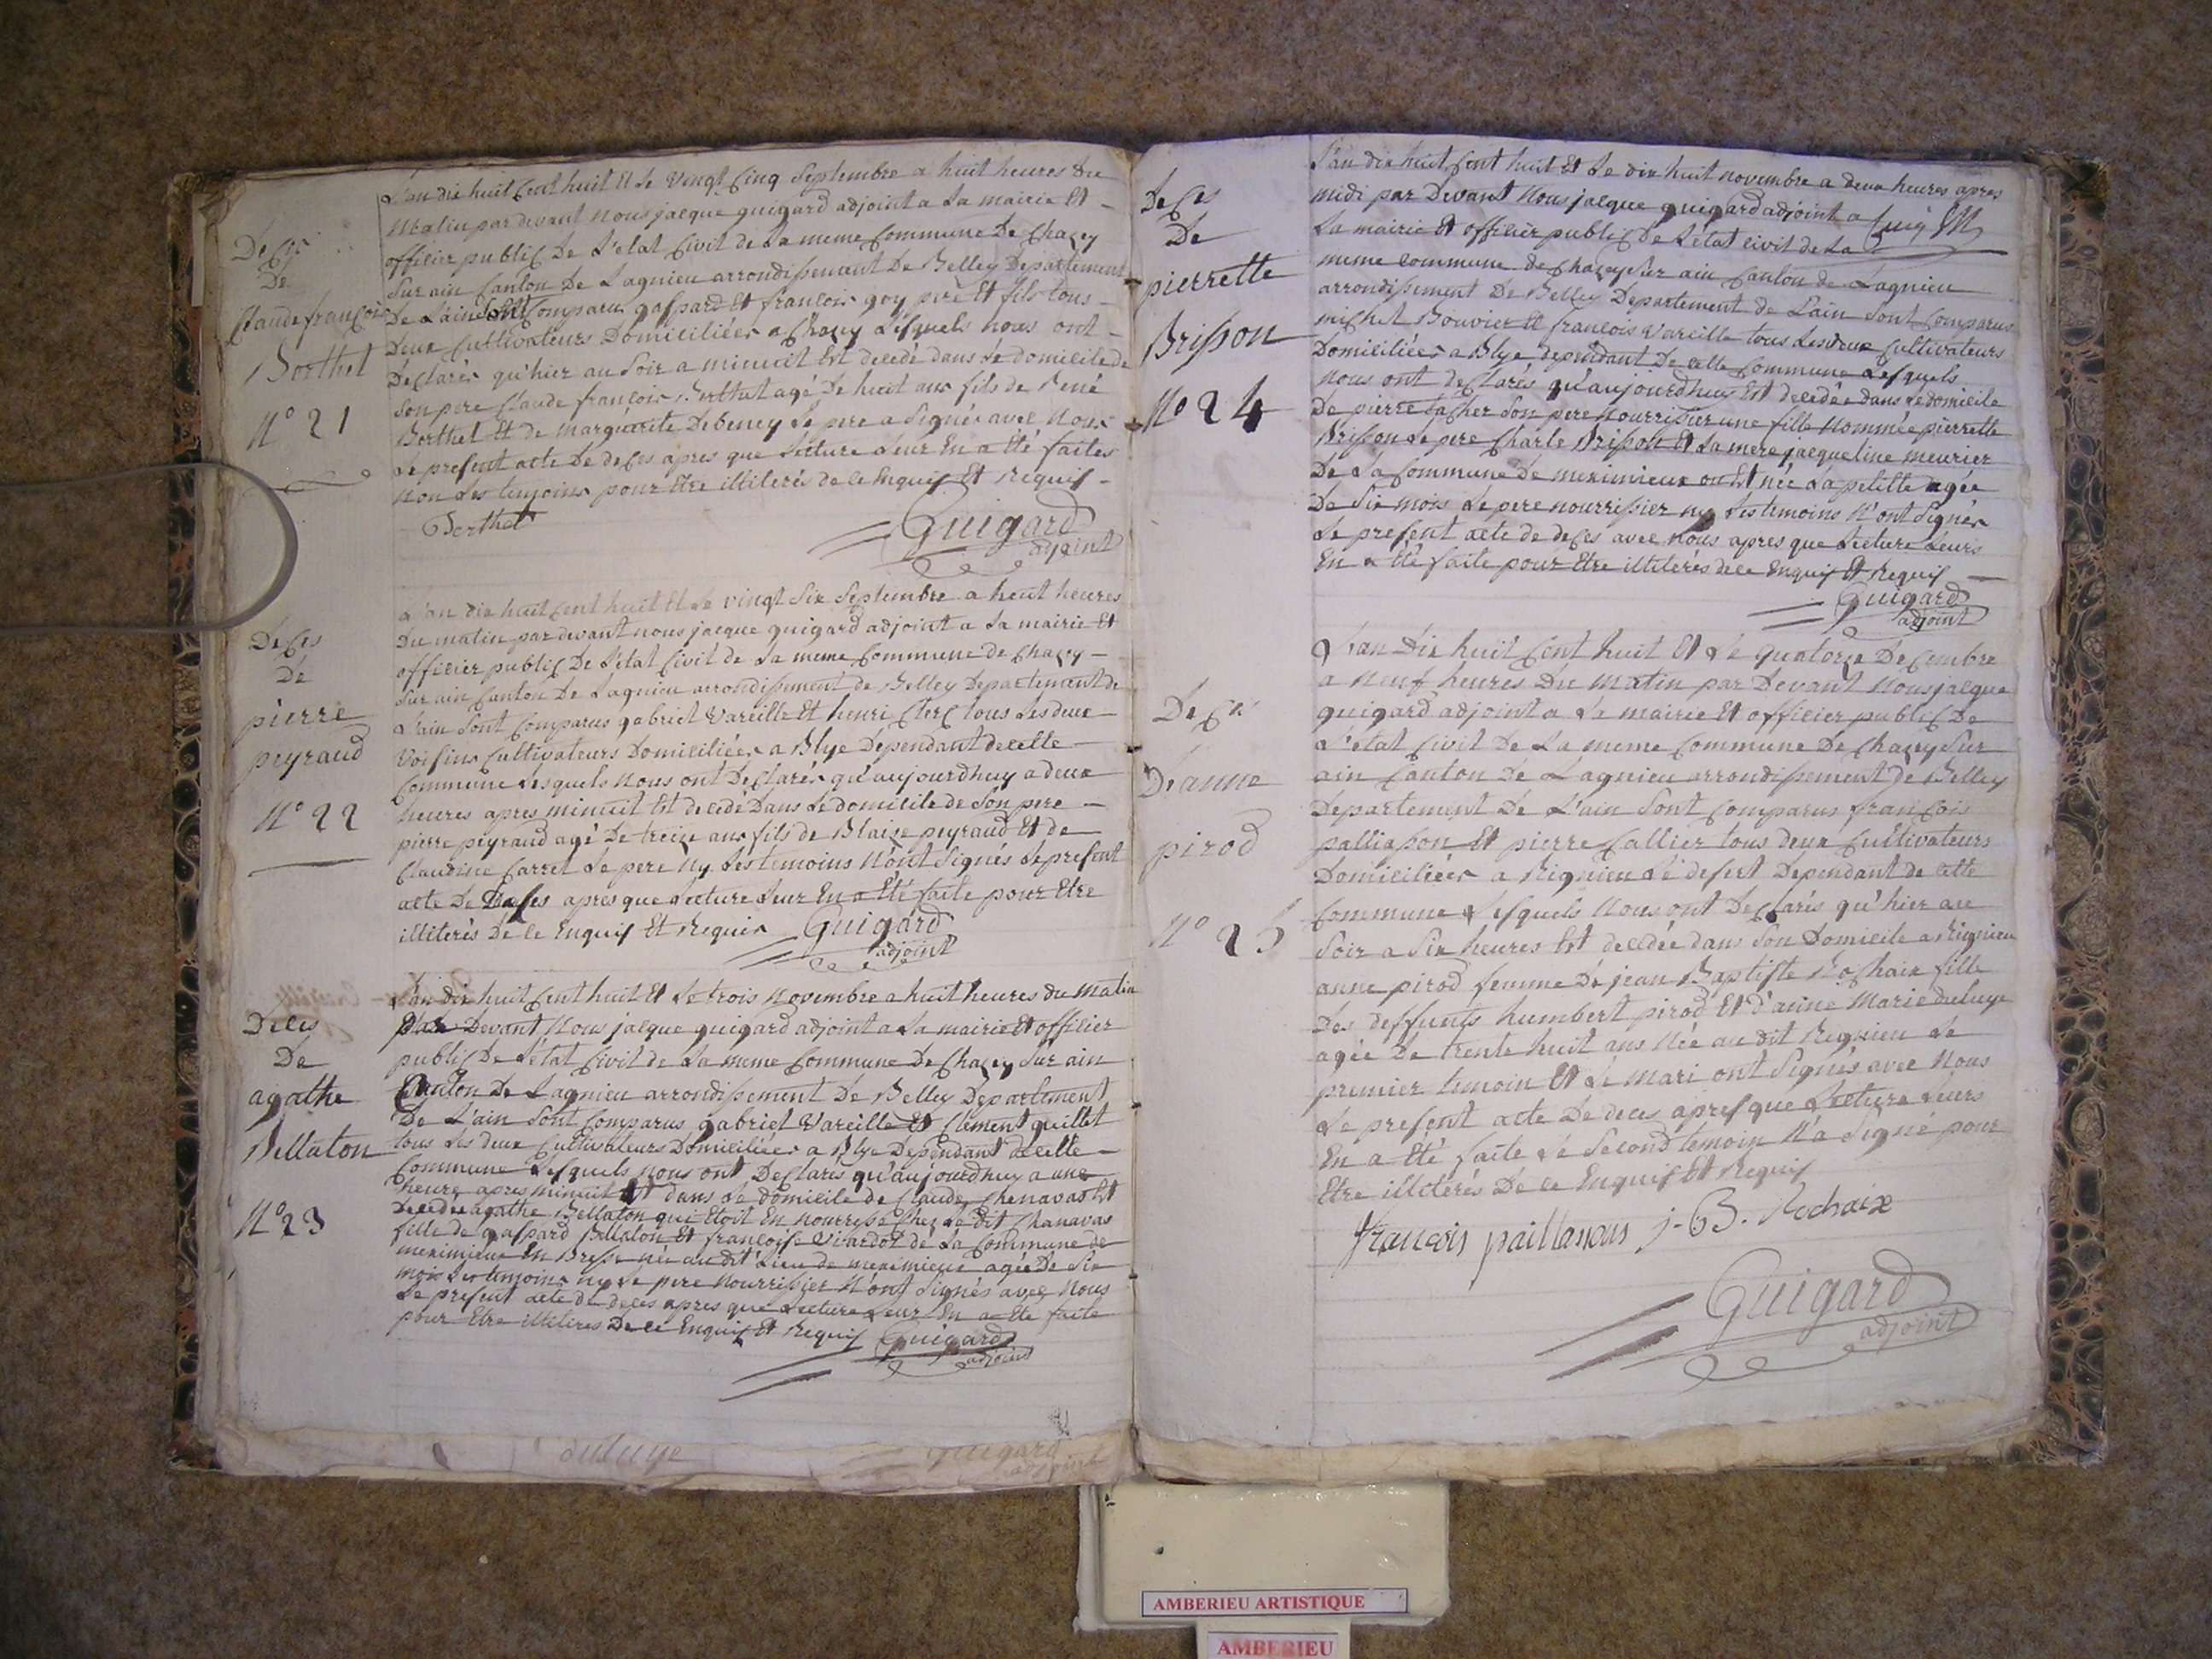 Deces
De
Claude françois
Berthet
N° 21
L'an dix huit Cent huit Et Le vingt Cinq Septembre a huit heures du
Matin par devant nous jacque guigard adjoint a La mairie Et
officier public De L'etat Civil de La meme Commune De Chazey
Sur ain Canton De Lagnieu arrondissement De Belley Departement
De L'ain Sont Comparu gaspard Et françois goy pere Et fils tous
Deux Cultivateurs Domiciliées a Chazey Lesquels nous ont
Declarés qu'hier au Soir a minuit Est decedé dans Le domicile de
Son pere Claude françois Berthet agé De huit ans fils de René
Berthet Et de Marguerite Debeney Le pere a Signés avec Nous
Le present acte De deces apres que Lecture Leur En a Eté faites
Non Les temoins pour Etre illiterés de ce Enquis Et Requis
Berthet
Guigard
adjoint
Deces
De
pierre
peyraud
N° 22
L'an dix huit Cent huit Et Le vingt Six Septembre a heut heures
Du matin par devant nous jacque guigard adjoint a La mairie Et
officier public De L'etat Civil de La meme Commune de Chazey
Sur ain Canton De Lagnieu arrondissement de Belley Departement de
L'ain Sont Comparus gabriel Vareille Et henri Clerc tous Les deux
Voisins Cultivateurs Domiciliées a Blye Dependant de cette
Commune Lesquels Nous ont Declarés qu'aujourdhuy a deux
heures apres minuit Est decedé Dans Le domicile de Son pere
pierre peyraud agé De treize ans fils de Blaize peyraud Et de
Claudine Carret Le pere Ny Les temoins N'ont Signés Le present
acte De Deces apres que Lecture Leur En a Eté faite pour Etre
illiterés De Ce Enquis Et Requis
Guigard
adjoint
Deces
De
agathe
Bellaton
N° 23
L'an dix huit Cent huit Et Le trois Novembre a huit heures du Matin
par Devant Nous jacque guigard adjoint a La mairie Et officier
public De L'etat Civil de La meme Commune De Chazey Sur ain
Canton De Lagnieu arrondissement De Belley Departement
De L'ain Sont Comparus gabriel Vareille Et Clement quillet
tous Les deux Cultivateurs Domiciliées a Blye Dependant de cette
Commune Lesquels nous ont Declarés qu'aujourdhuy a une
heure apres minuit Est dans Le domicile de Claude Chenavas Est
Decedée agathe Bellaton qui Etoit En nourrisse Chez Le dit Chanavas
fille de gaspard Bellaton Et françoise Viardot de La Commune de
meximieux En Bresse née au dit Lieu de meximieux agée De Six
mois Les temoins ny Le pere Nourrissier N'ont Signés avec Nous
Le present acte de deces apres que Lecture Leur En a Eté faite
pour Etre illiteres De ce Enquis Et Requis
Guigard
adjoint
duluye
Guigard
adjoint
Deces
De
pierrette
Brisson
N° 24
L'an dix huit Cent huit Et Le dix huit novembre a deux heures apres
midi par Devant Nous jacque guigard adjoint a
La mairie Et officier public De L'etat civil de La
meme commune de Chazey Sur ain Canton de Lagnieu
arrondissement De Belley Departement de L'ain Sont Comparus
michel Bouvier Et françois Vareille tous Les deux Cultivateurs
Domiciliées a Blye dependant De cette Commune Lesquels
Nous ont declarés qu'aujourdhuy Est decedée dans Le domicile
De pierre Son pere Nourrissier une fille Nommée pierrette
Brisson Le pere Charle Brisson Et La mere jacqueline meurier
De La Commune De meximieux ou Est née La petitte agée
De Six mois Le pere nourrissier ny Les temoins N'ont Signés
Le present acte de deces avec Nous apres que Lecture Leurs
En a Eté faite pour Etre illiterés de ce Enquis Et Requis
Guigard
adjoint
Deces
D'anne
pirod
N° 25
L'an Dix huit Cent huit Et Le quatorze Decembre
a Neuf heures Du Matin par Devant Nous jacque
guigard adjoint a La mairie Et officier public De
L'etat Civil De La meme Commune De Chazey Sur
ain Canton De Lagnieu arrondissement de Belley
Departement De L'ain Sont Comparus françois
palliasson Et pierre Callier tous deux Cultivateurs
Domiciliéés a Rignieu Le desert Dependant de cette
Commune Lesquels Nous ont Declarés qu'hier au
Soir a Six heures Est decedée dans Son Domicile a Rignieu
anne pirod femme De jean Baptiste Rochaix fille
Des deffunts humbert pirod Et d'anne Marie duluye
agée De trente huit ans Née au dit Rignieu Le
premier temoin Et Le mari ont Signés avec Nous
Le present acte De deces apres que Lecture Leurs
En a Eté faite Le Second temoin N'a Signé pour
Etre illiterés De ce Enquis Et Requis
françois paillassons j-B. Rochaix
Guigard
adjoint
AMBERIEU ARTISTIQUE
AMBERIEU